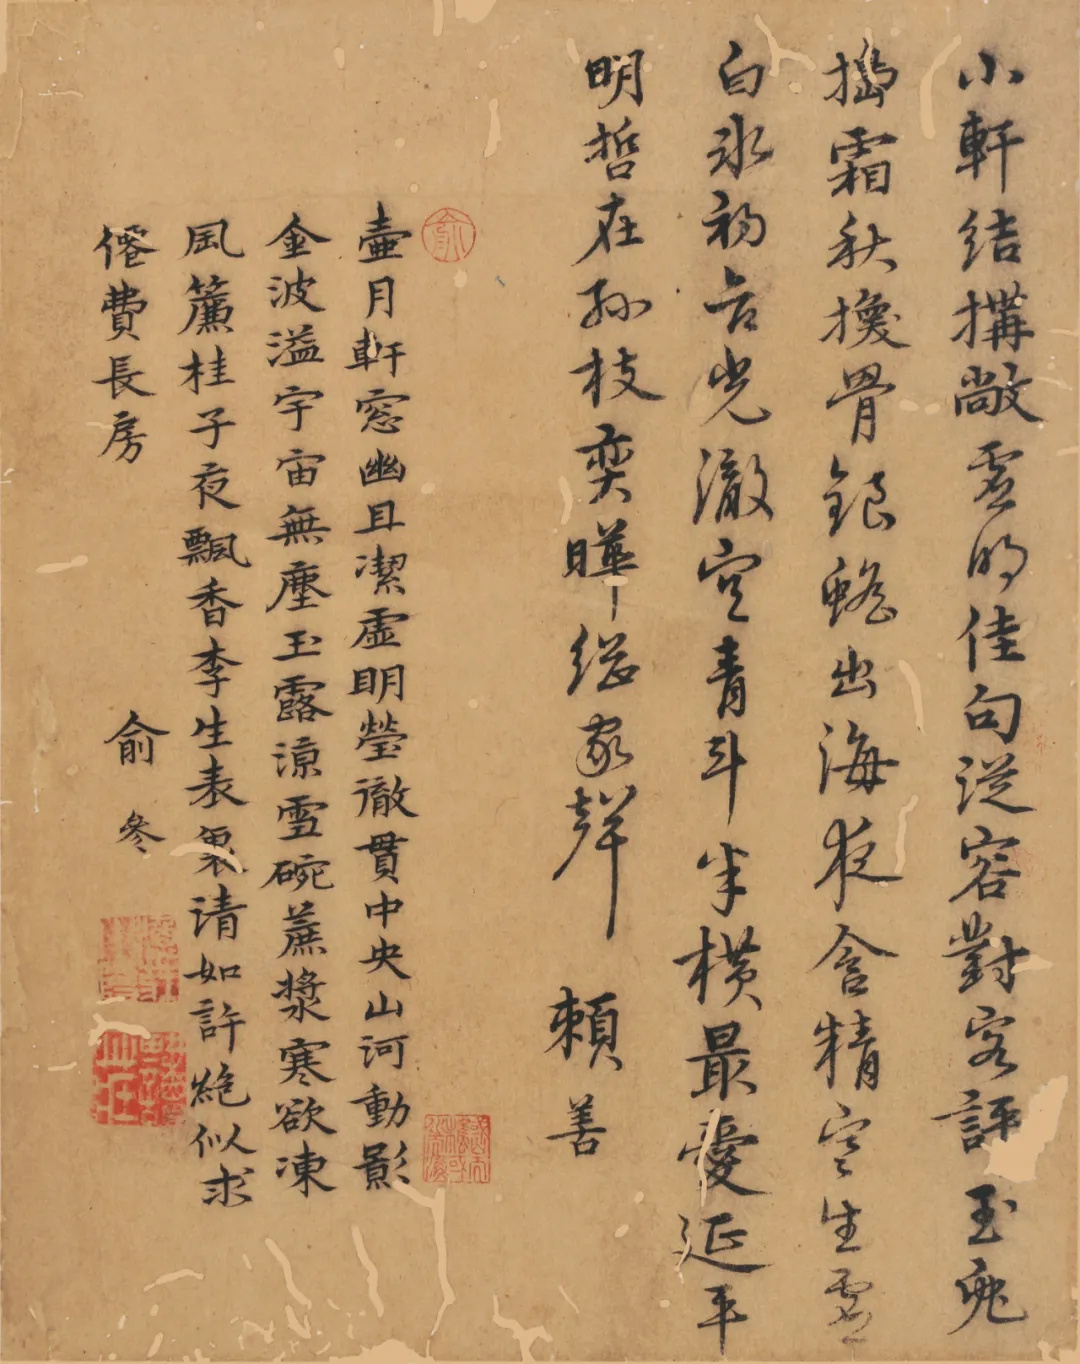 小軒結構敞虛明佳句從容對客評玉兔
搗霜秋換骨銀蟾出海夜含精寒生虛
白氷初合光澈空青斗半橫最愛延平
明哲在孫枝奕曄繼家聲
賴善
壷月軒窓幽且潔虛明瑩徹貫中央山河動影
金波溢宇宙無塵玉露涼雪碗蔗漿寒欲凍
風簾桂子夜飄香李生表裏請如許絶似求
僊費長房
俞參
俞